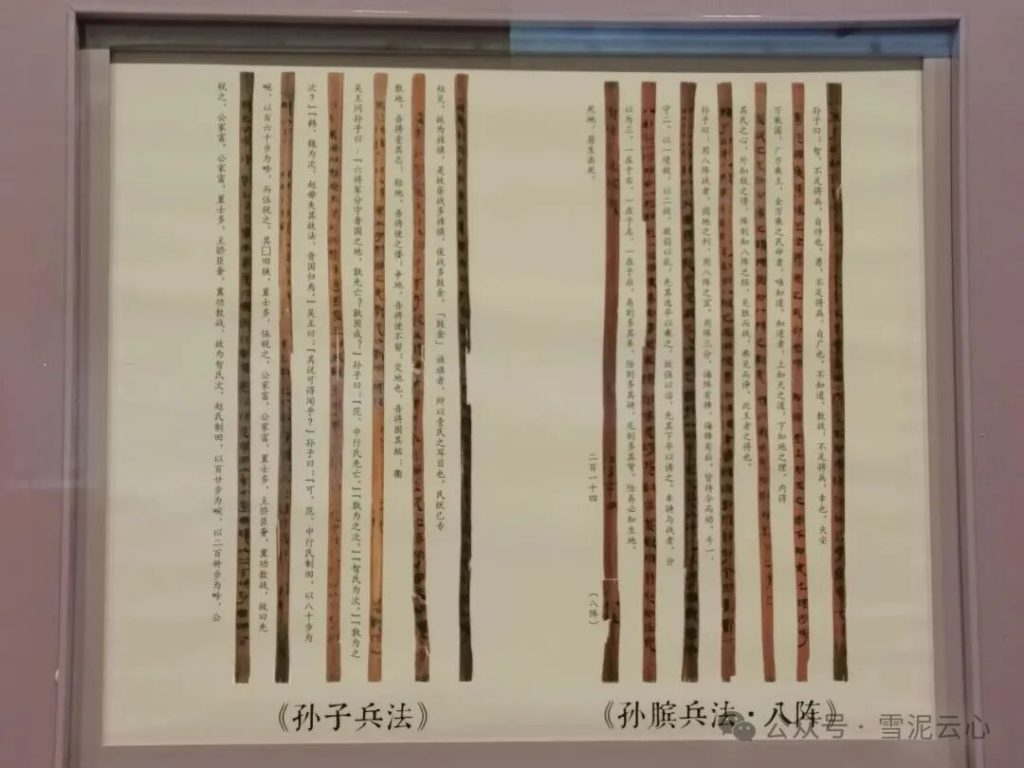 孙子曰：智，不足将兵，自恃也。勇，不足将兵，自广也。不知道，数战，不足将兵，幸也。夫安
万乘国，广万乘王，全万乘之民命者，唯知道。知道者，上知天之道，下知地之理，内得
其民之心，外知敌之情，阵则知八阵之经，见胜而战，弗见而诤，此王者之将也。
孙子曰：用八阵战者，因地之利，用八阵之宜。用阵三分，诲阵有锋，诲锋有后，皆待令而动。斗一，
守二。以一侵敌，以二收。敌弱以乱，先其选卒以乘之。敌强以治，先其下卒以诱之。车骑与战者，分
以为三，一在于右，一在于左，一在于后。易则多其车，险则多其骑，厄则多其弩。险易必知生地、
死地，居生击死。
二百一十四
（八阵）
相见，故为旌旗。是故昼战多旌旗，夜战多鼓金。「鼓金」旌旗者，所以壹民之耳目也。民既已专
散地，吾将壹其志；轻地，吾将使之偻；争地，吾将使不留；交地也，吾将固其结；衢
吴王问孙子曰：「六将军分守晋国之地，孰先亡？孰固成？」孙子曰：「范、中行氏先亡。」「孰为之次。」「智氏为次。」「孰为之
次？」「韩、魏为次。赵毋失其故法，晋国归焉。」吴王曰：「其说可得闻乎？」孙子曰：「可。范、中行氏制田，以八十步为
畹，以百六十步为畛，而伍税之。其□田狭，置士多，伍税之，公家富。公家富，置士多，主骄臣奢，冀功数战，故曰先
税之。公家富，公家富，置士多，主骄臣奢，冀功数战，故为智氏次。赵氏制田，以百廿步为畹，以二百卌步为畛，公
《孙子兵法》
《孙膑兵法·八阵》
公众号·雪泥云心